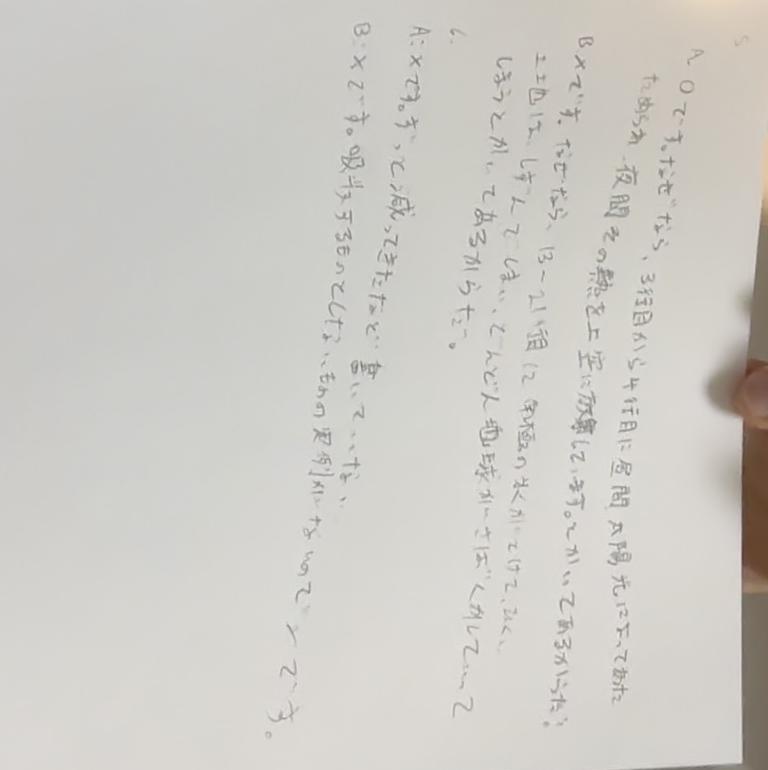 5
A. Oです。なぜなら、3行目から4行目に昼間、太陽光によってあたた
ためられ、夜間その熱を上空に放射しています。とかいてあるからだ。
B xです。なぜなら、13〜21行目に南極の氷がとけて、ひくい
土地は、しずんでしまい、どんどん地球がさばくかしていって
しまうとかいてあるからだ。
6.
A:xです。ずっと減ってきたなど書いていない
B:xです。吸収するものとしないものの実例がないのでxです。